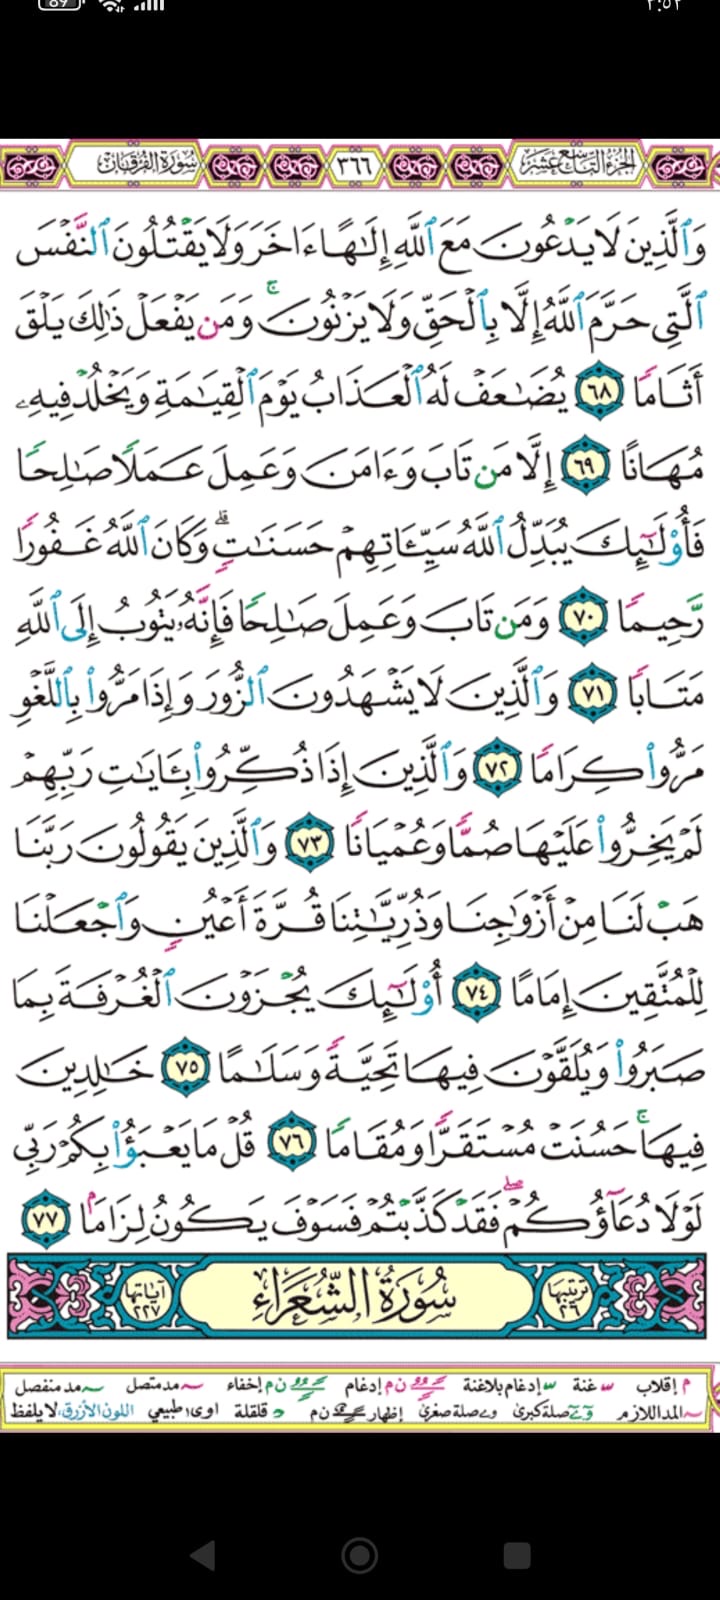 89 ٢:٥٢
الجزء التاسع عشر ٣٦٦ سورة الفرقان
وَٱلَّذِينَ لَا يَدۡعُونَ مَعَ ٱللَّهِ إِلَٰهًا ءَاخَرَ وَلَا يَقۡتُلُونَ ٱلنَّفۡسَ
ٱلَّتِي حَرَّمَ ٱللَّهُ إِلَّا بِٱلۡحَقِّ وَلَا يَزۡنُونَۚ وَمَن يَفۡعَلۡ ذَٰلِكَ يَلۡقَ
أَثَامٗا ٦٨ يُضَٰعَفۡ لَهُ ٱلۡعَذَابُ يَوۡمَ ٱلۡقِيَٰمَةِ وَيَخۡلُدۡ فِيهِۦ
مُهَانًا ٦٩ إِلَّا مَن تَابَ وَءَامَنَ وَعَمِلَ عَمَلٗا صَٰلِحٗا
فَأُوْلَٰٓئِكَ يُبَدِّلُ ٱللَّهُ سَيِّـَٔاتِهِمۡ حَسَنَٰتٖۗ وَكَانَ ٱللَّهُ غَفُورٗا
رَّحِيمٗا ٧٠ وَمَن تَابَ وَعَمِلَ صَٰلِحٗا فَإِنَّهُۥ يَتُوبُ إِلَى ٱللَّهِ
مَتَابٗا ٧١ وَٱلَّذِينَ لَا يَشۡهَدُونَ ٱلزُّورَ وَإِذَا مَرُّواْ بِٱللَّغۡوِ
مَرُّواْ كِرَامٗا ٧٢ وَٱلَّذِينَ إِذَا ذُكِّرُواْ بِـَٔايَٰتِ رَبِّهِمۡ
لَمۡ يَخِرُّواْ عَلَيۡهَا صُمّٗا وَعُمۡيَانٗا ٧٣ وَٱلَّذِينَ يَقُولُونَ رَبَّنَا
هَبۡ لَنَا مِنۡ أَزۡوَٰجِنَا وَذُرِّيَّٰتِنَا قُرَّةَ أَعۡيُنٖ وَٱجۡعَلۡنَا
لِلۡمُتَّقِينَ إِمَامًا ٧٤ أُوْلَٰٓئِكَ يُجۡزَوۡنَ ٱلۡغُرۡفَةَ بِمَا
صَبَرُواْ وَيُلَقَّوۡنَ فِيهَا تَحِيَّةٗ وَسَلَٰمًا ٧٥ خَٰلِدِينَ
فِيهَاۚ حَسُنَتۡ مُسۡتَقَرّٗا وَمُقَامٗا ٧٦ قُلۡ مَا يَعۡبَؤُاْ بِكُمۡ رَبِّي
لَوۡلَا دُعَآؤُكُمۡۖ فَقَدۡ كَذَّبۡتُمۡ فَسَوۡفَ يَكُونُ لِزَامَۢا ٧٧
ترتيبها ٢٦ سُورَةُ الشُّعَرَاءِ آياتها ٢٢٧
م إقلاب غنة إدغام بلاغنة ن م إدغام ن م إخفاء مد متصل مد منفصل
المد اللازم صلة كبرى صلة صغرى إظهار ن م قلقلة اوى طبيعي اللون الأزرق: لا يلفظ